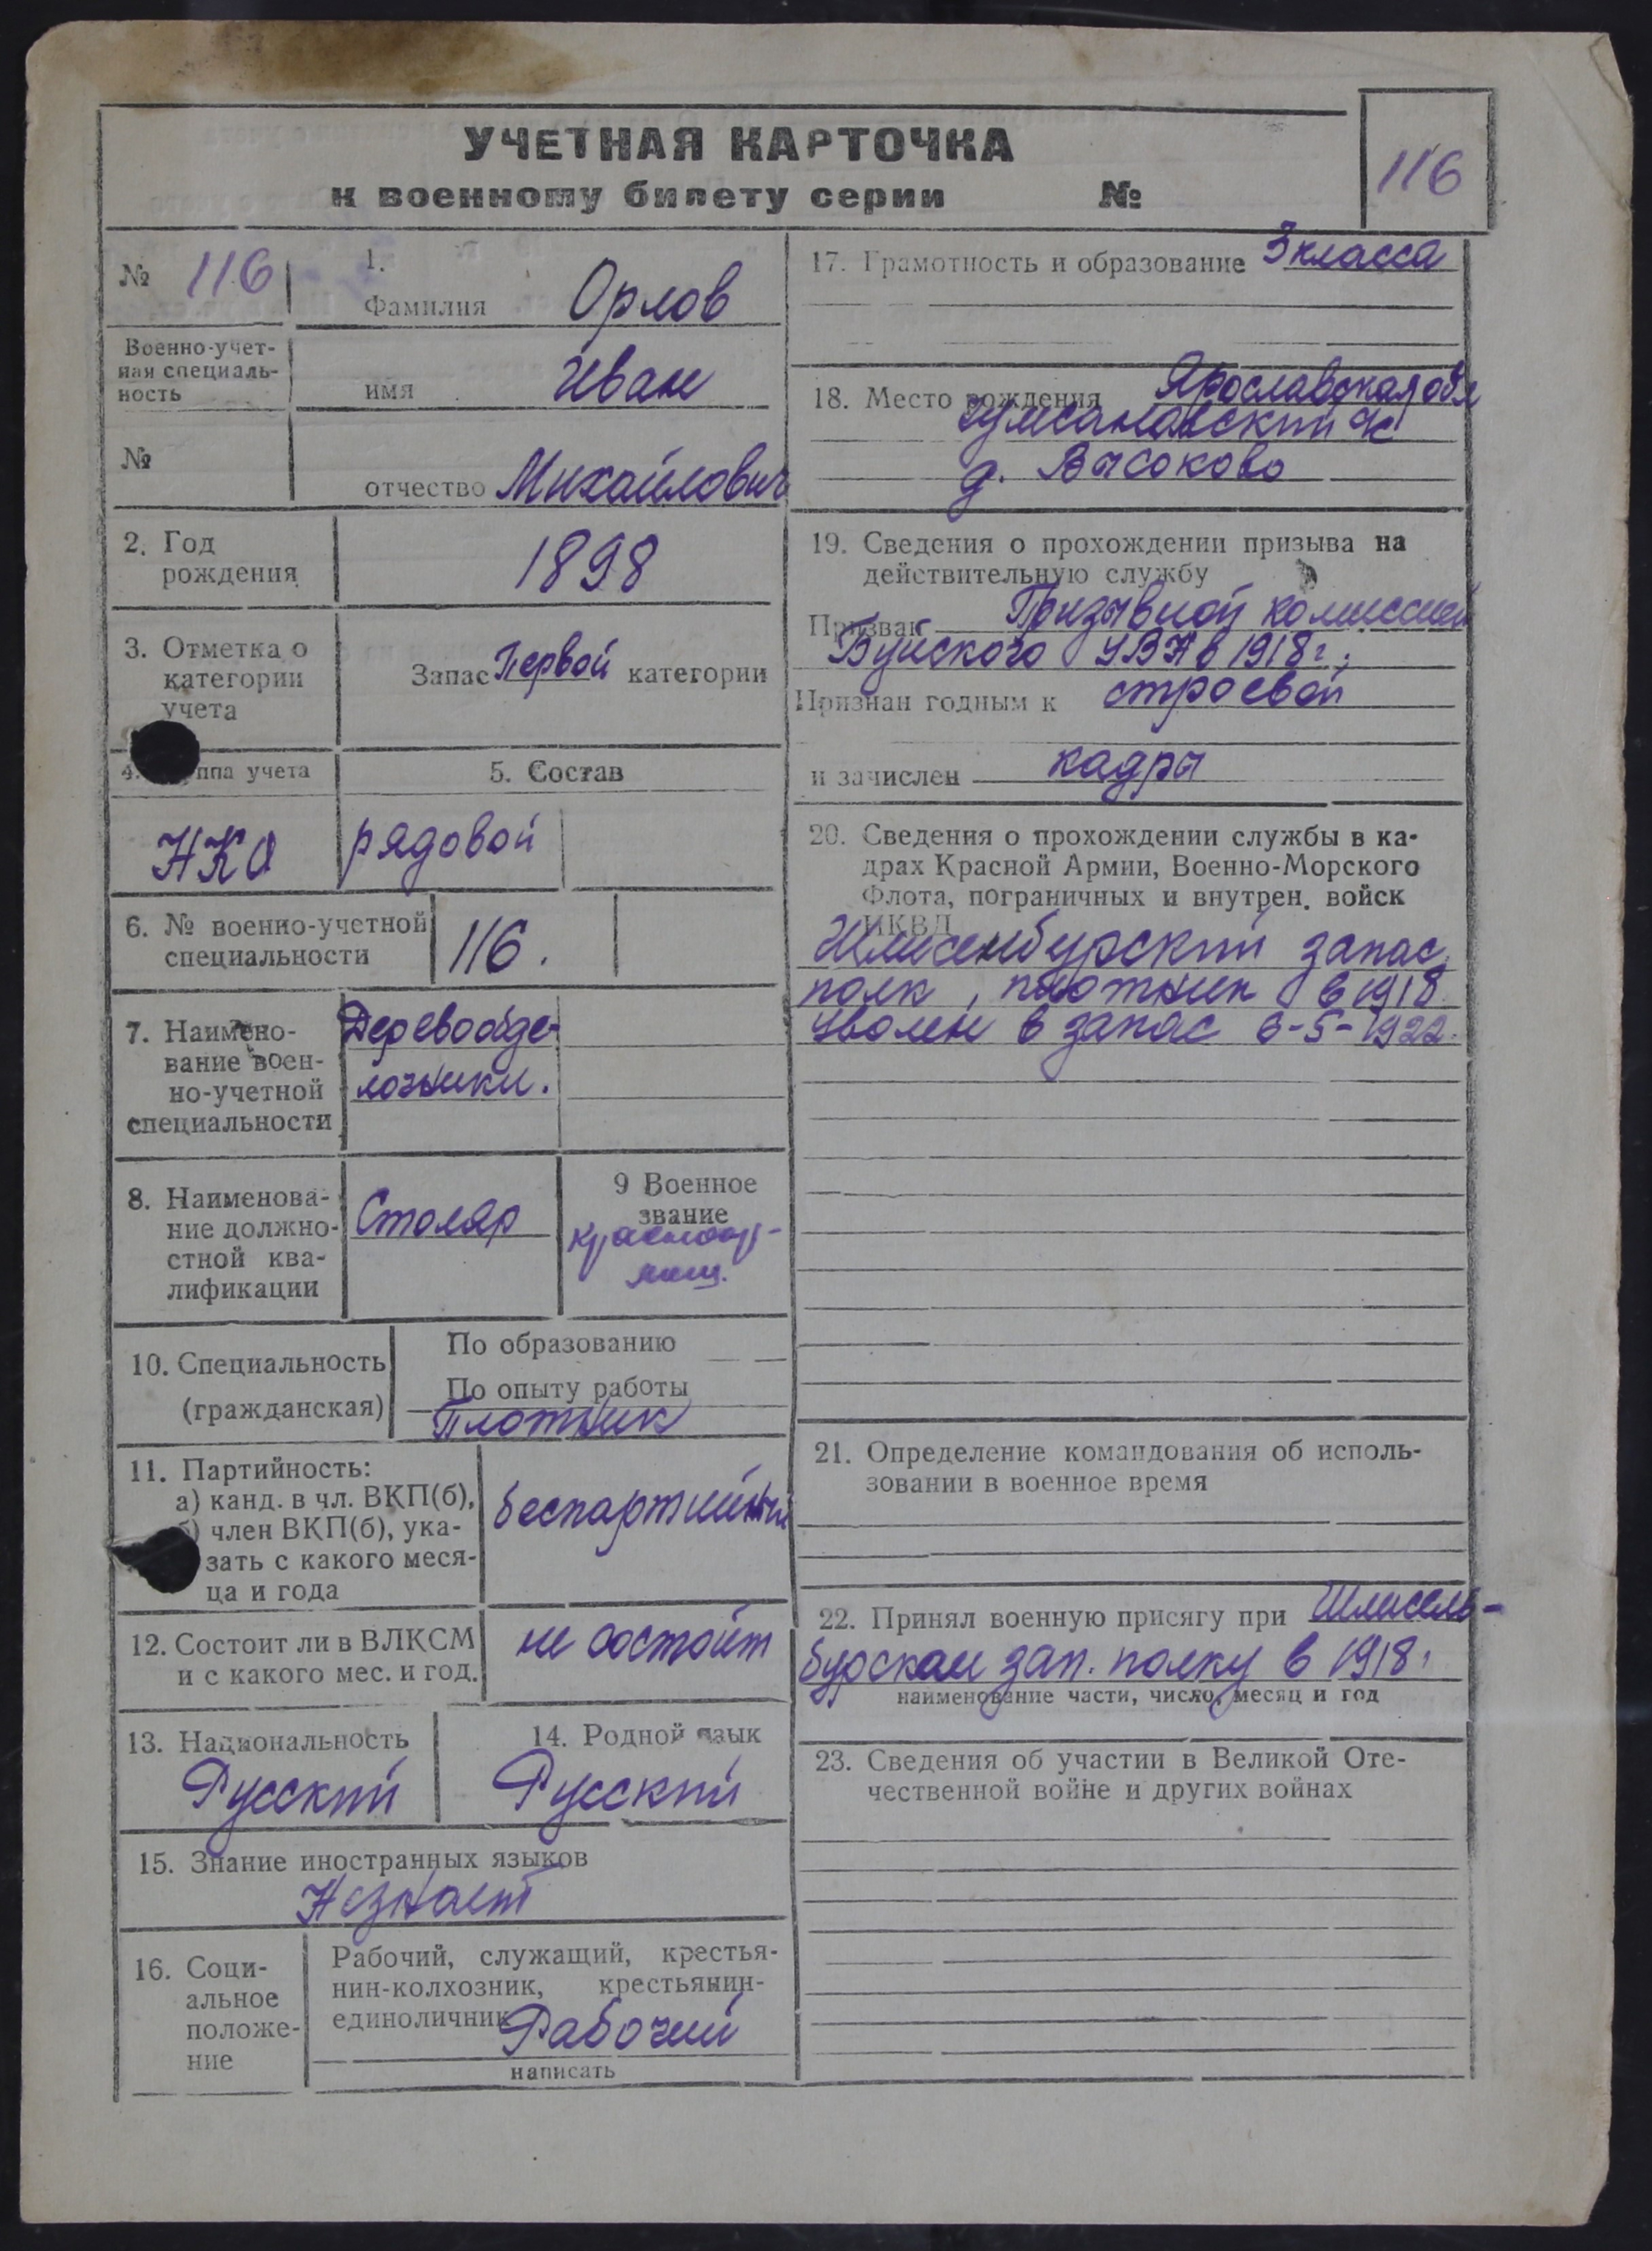 УЧЕТНАЯ КАРТОЧКА
к военному билету серии №
116
№ 116
Военно-учет-
ная специаль-
ность
№
1.
Фамилия Орлов
имя Иван
отчество Михайлович
2. Год
рождения
1898
3. Отметка о
категории
учета
Запас Первой категории
4. ппа учета
НКО
5. Состав
рядовой
6. № военно-учетной
специальности
116.
7. Наимено-
вание воен-
но-учетной
специальности
Деревообде-
лочники.
8. Наименова-
ние должно-
стной ква-
лификации
Столяр
9 Военное
звание
красноар-
меец.
10. Специальность
(гражданская)
По образованию
По опыту работы
Плотник
11. Партийность:
а) канд. в чл. ВКП(б),
б) член ВКП(б), ука-
зать с какого меся-
ца и года
беспартийный
12. Состоит ли в ВЛКСМ
и с какого мес. и год.
не состоит
13. Национальность
Русский
14. Родной язык
Русский
15. Знание иностранных языков
Незнает
16. Соци-
альное
положе-
ние
Рабочий, служащий, крестья-
нин-колхозник, крестьянин-
единоличник
Рабочий
написать
17. Грамотность и образование 3 класса
18. Место рождения Ярославская обл
д. Высоково
19. Сведения о прохождении призыва на
действительную службу
Призван Призывной комиссией
Буйского УВК в 1918 г.
Признан годным к строевой
и зачислен кадры
20. Сведения о прохождении службы в ка-
драх Красной Армии, Военно-Морского
Флота, пограничных и внутрен. войск
НКВД
запас.
полк, плотник в 1918
уволен в запас 6-5-1922.
21. Определение командования об исполь-
зовании в военное время
22. Принял военную присягу при Шлисель-
бурском зап. полку в 1918.
наименование части, число, месяц и год
23. Сведения об участии в Великой Оте-
чественной войне и других войнах